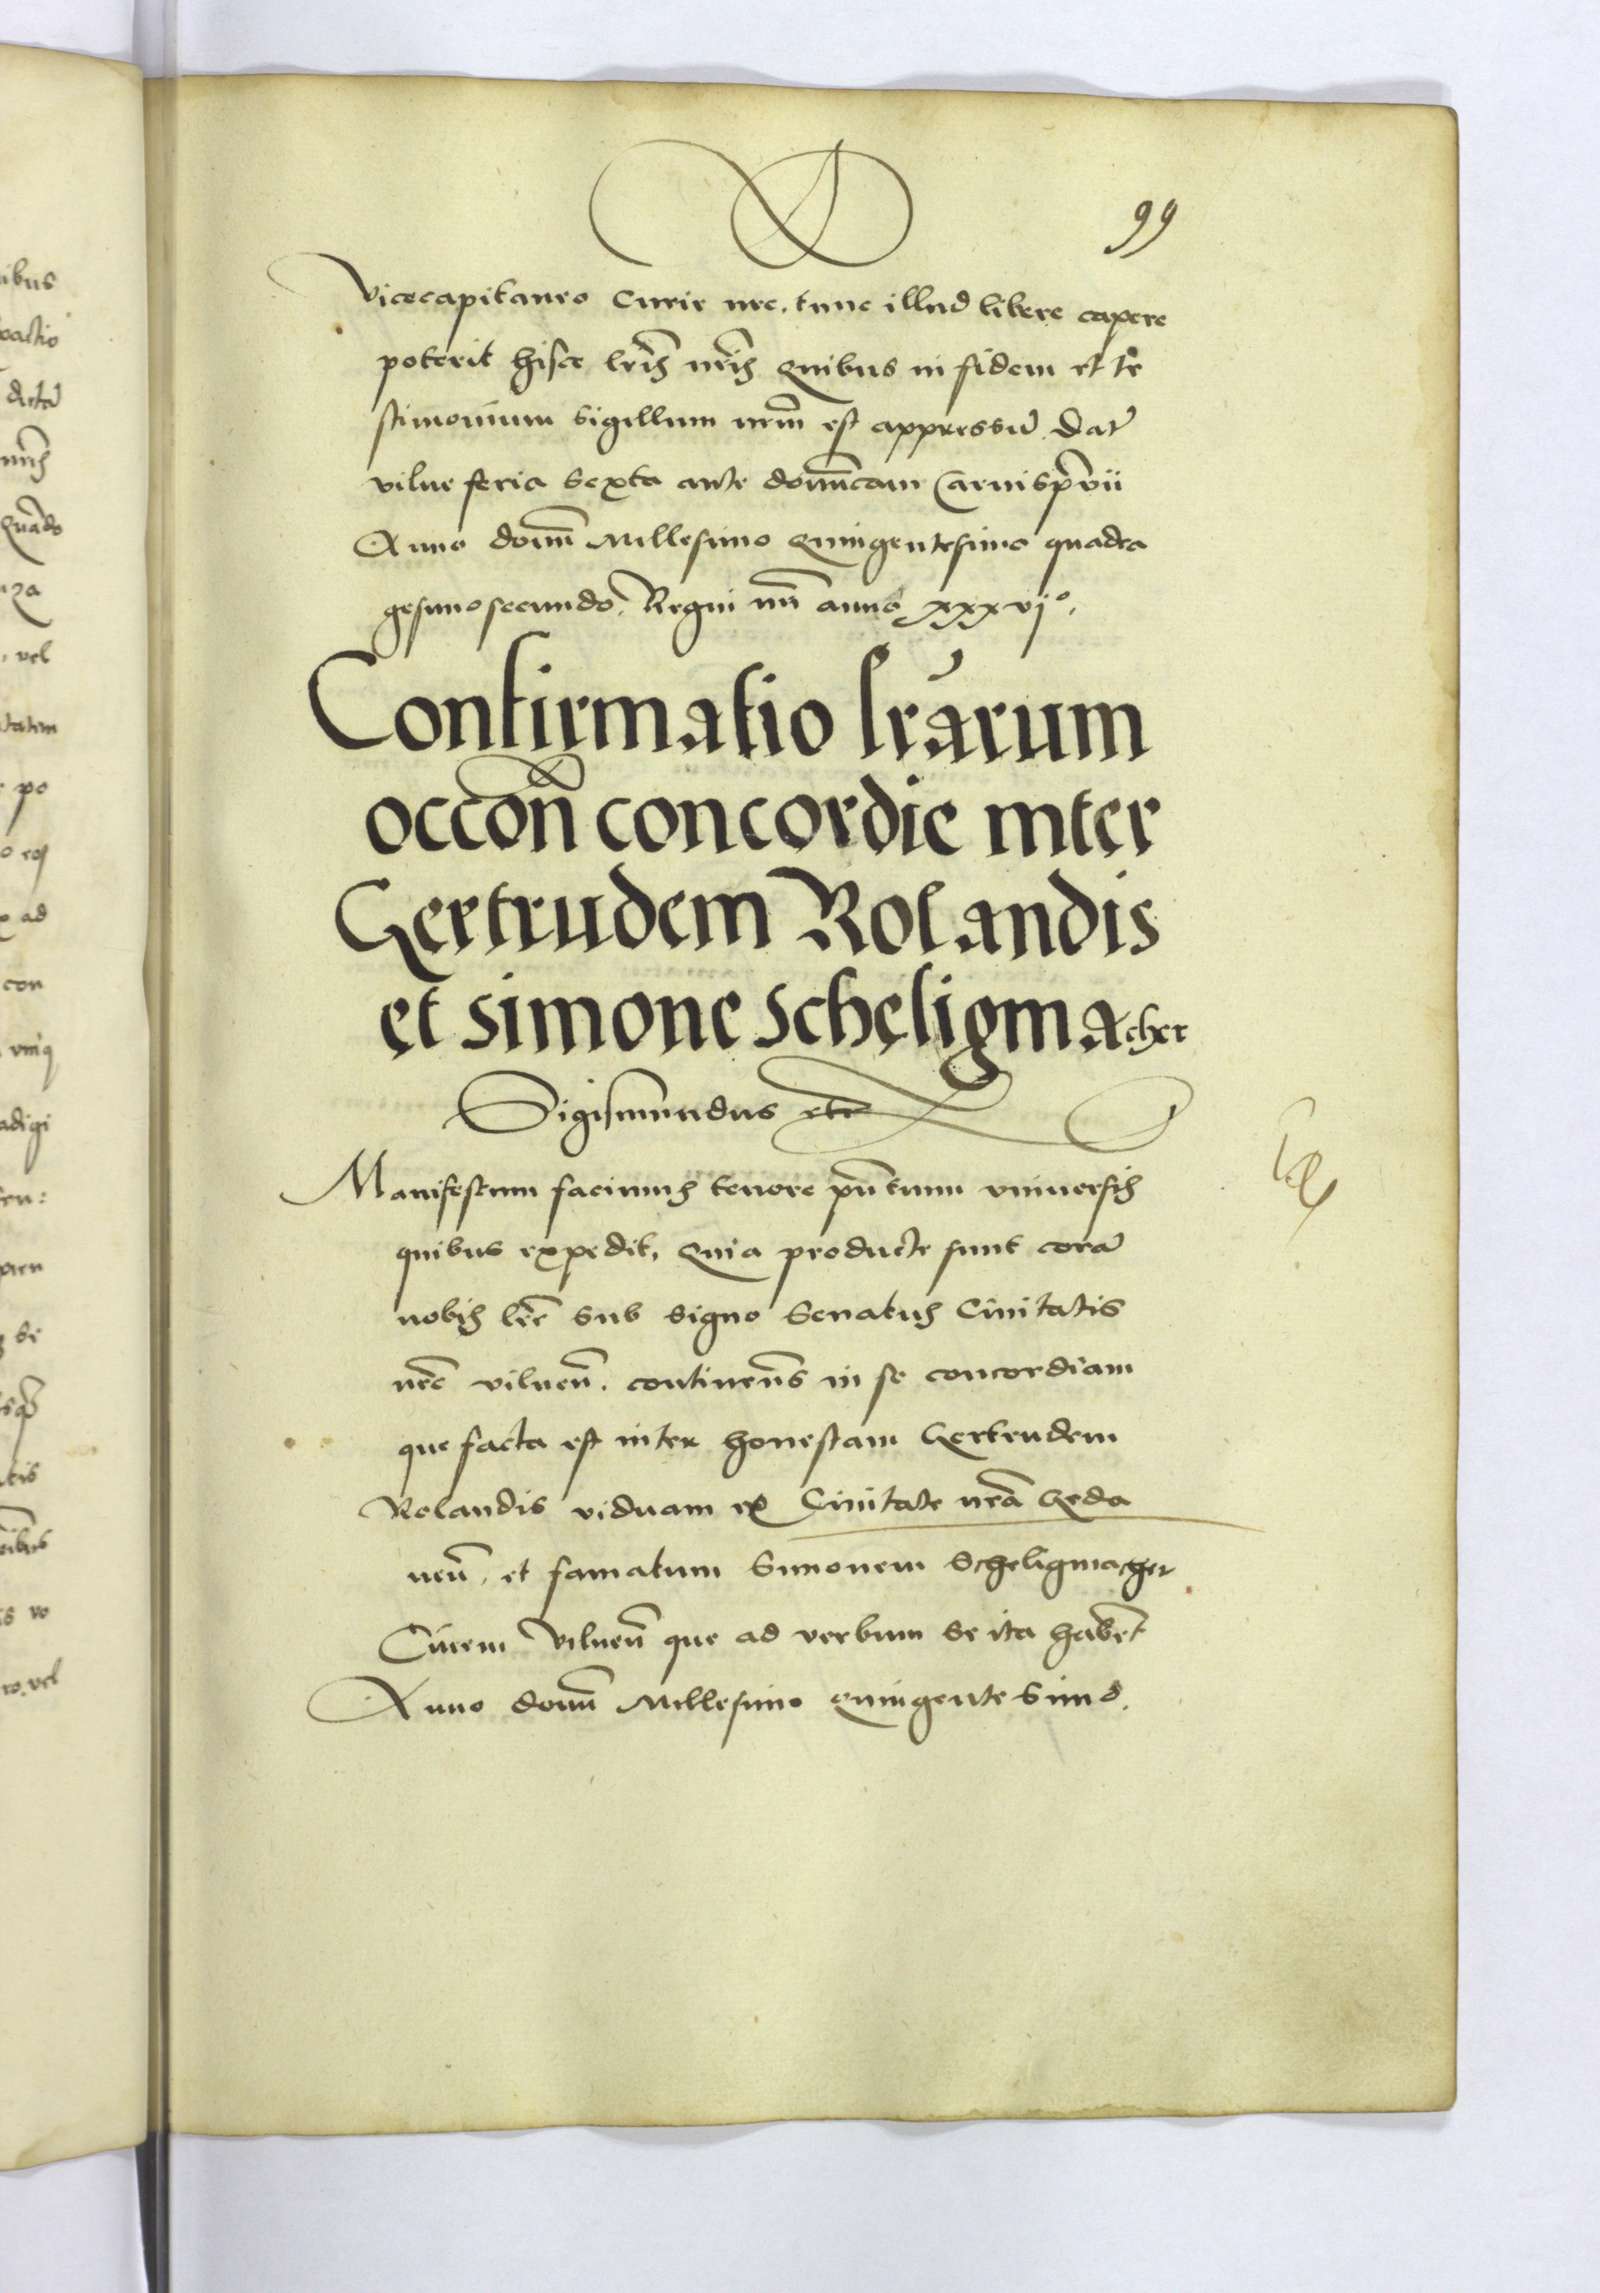 99
Vicecapitaneo Curie nre. tunc illud libere capere
poterit hisce lris nris Quibus in fidem et te
stimonium Sigillum nrm est appressu. Dat
vilne feria Sexta ante domicam Carnispruii
Anno domi Millesimo Quingentesimo quadra
gesimosecundo. Regni nri anno xxxvjo.
Confirmatio lrarum
occon concordie inter
Gertrudem Rolandis
et Simone Scheligmacher
Sigismundus etc
Manifestum facimus tenore pntium vniuersis
quibus expedit, Quia producte sunt cora
nobis lre sub signo Senatus Ciuitatis
nre vilnen. continens in se concordiam
que facta est inter honestam Gertrudem
Rolandis viduam ex Ciuitate nra Geda
nen. et famatum Simonem Scheligmacher
Ciuem vilnen que ad verbum se ita habet
Anno domi Millesimo Quingentesimo.
ibus
dicta
nris
Quado
vel
po
ad
con
vniq
adigi
se
tis
vo
ro. vel